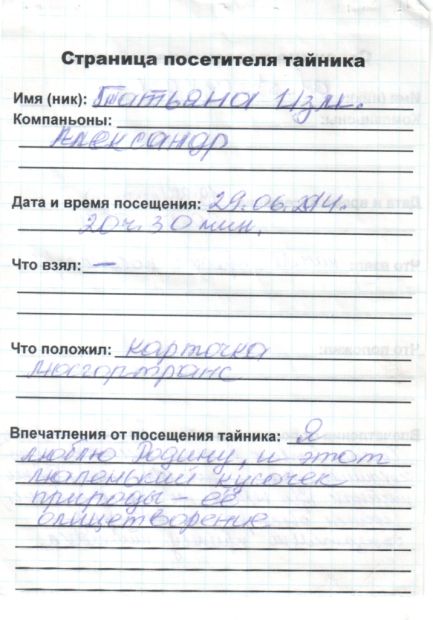 Страница посетителя тайника
Имя (ник): Татьяна Изм.
Компаньоны:
Александр
Дата и время посещения: 29.06.2014.
20ч. 30 мин.
Что взял: —
Что положил: карточка
мосгортранс
Впечатления от посещения тайника: Я
люблю Родину, и этот
маленький кусочек
природы – её
олицетворение